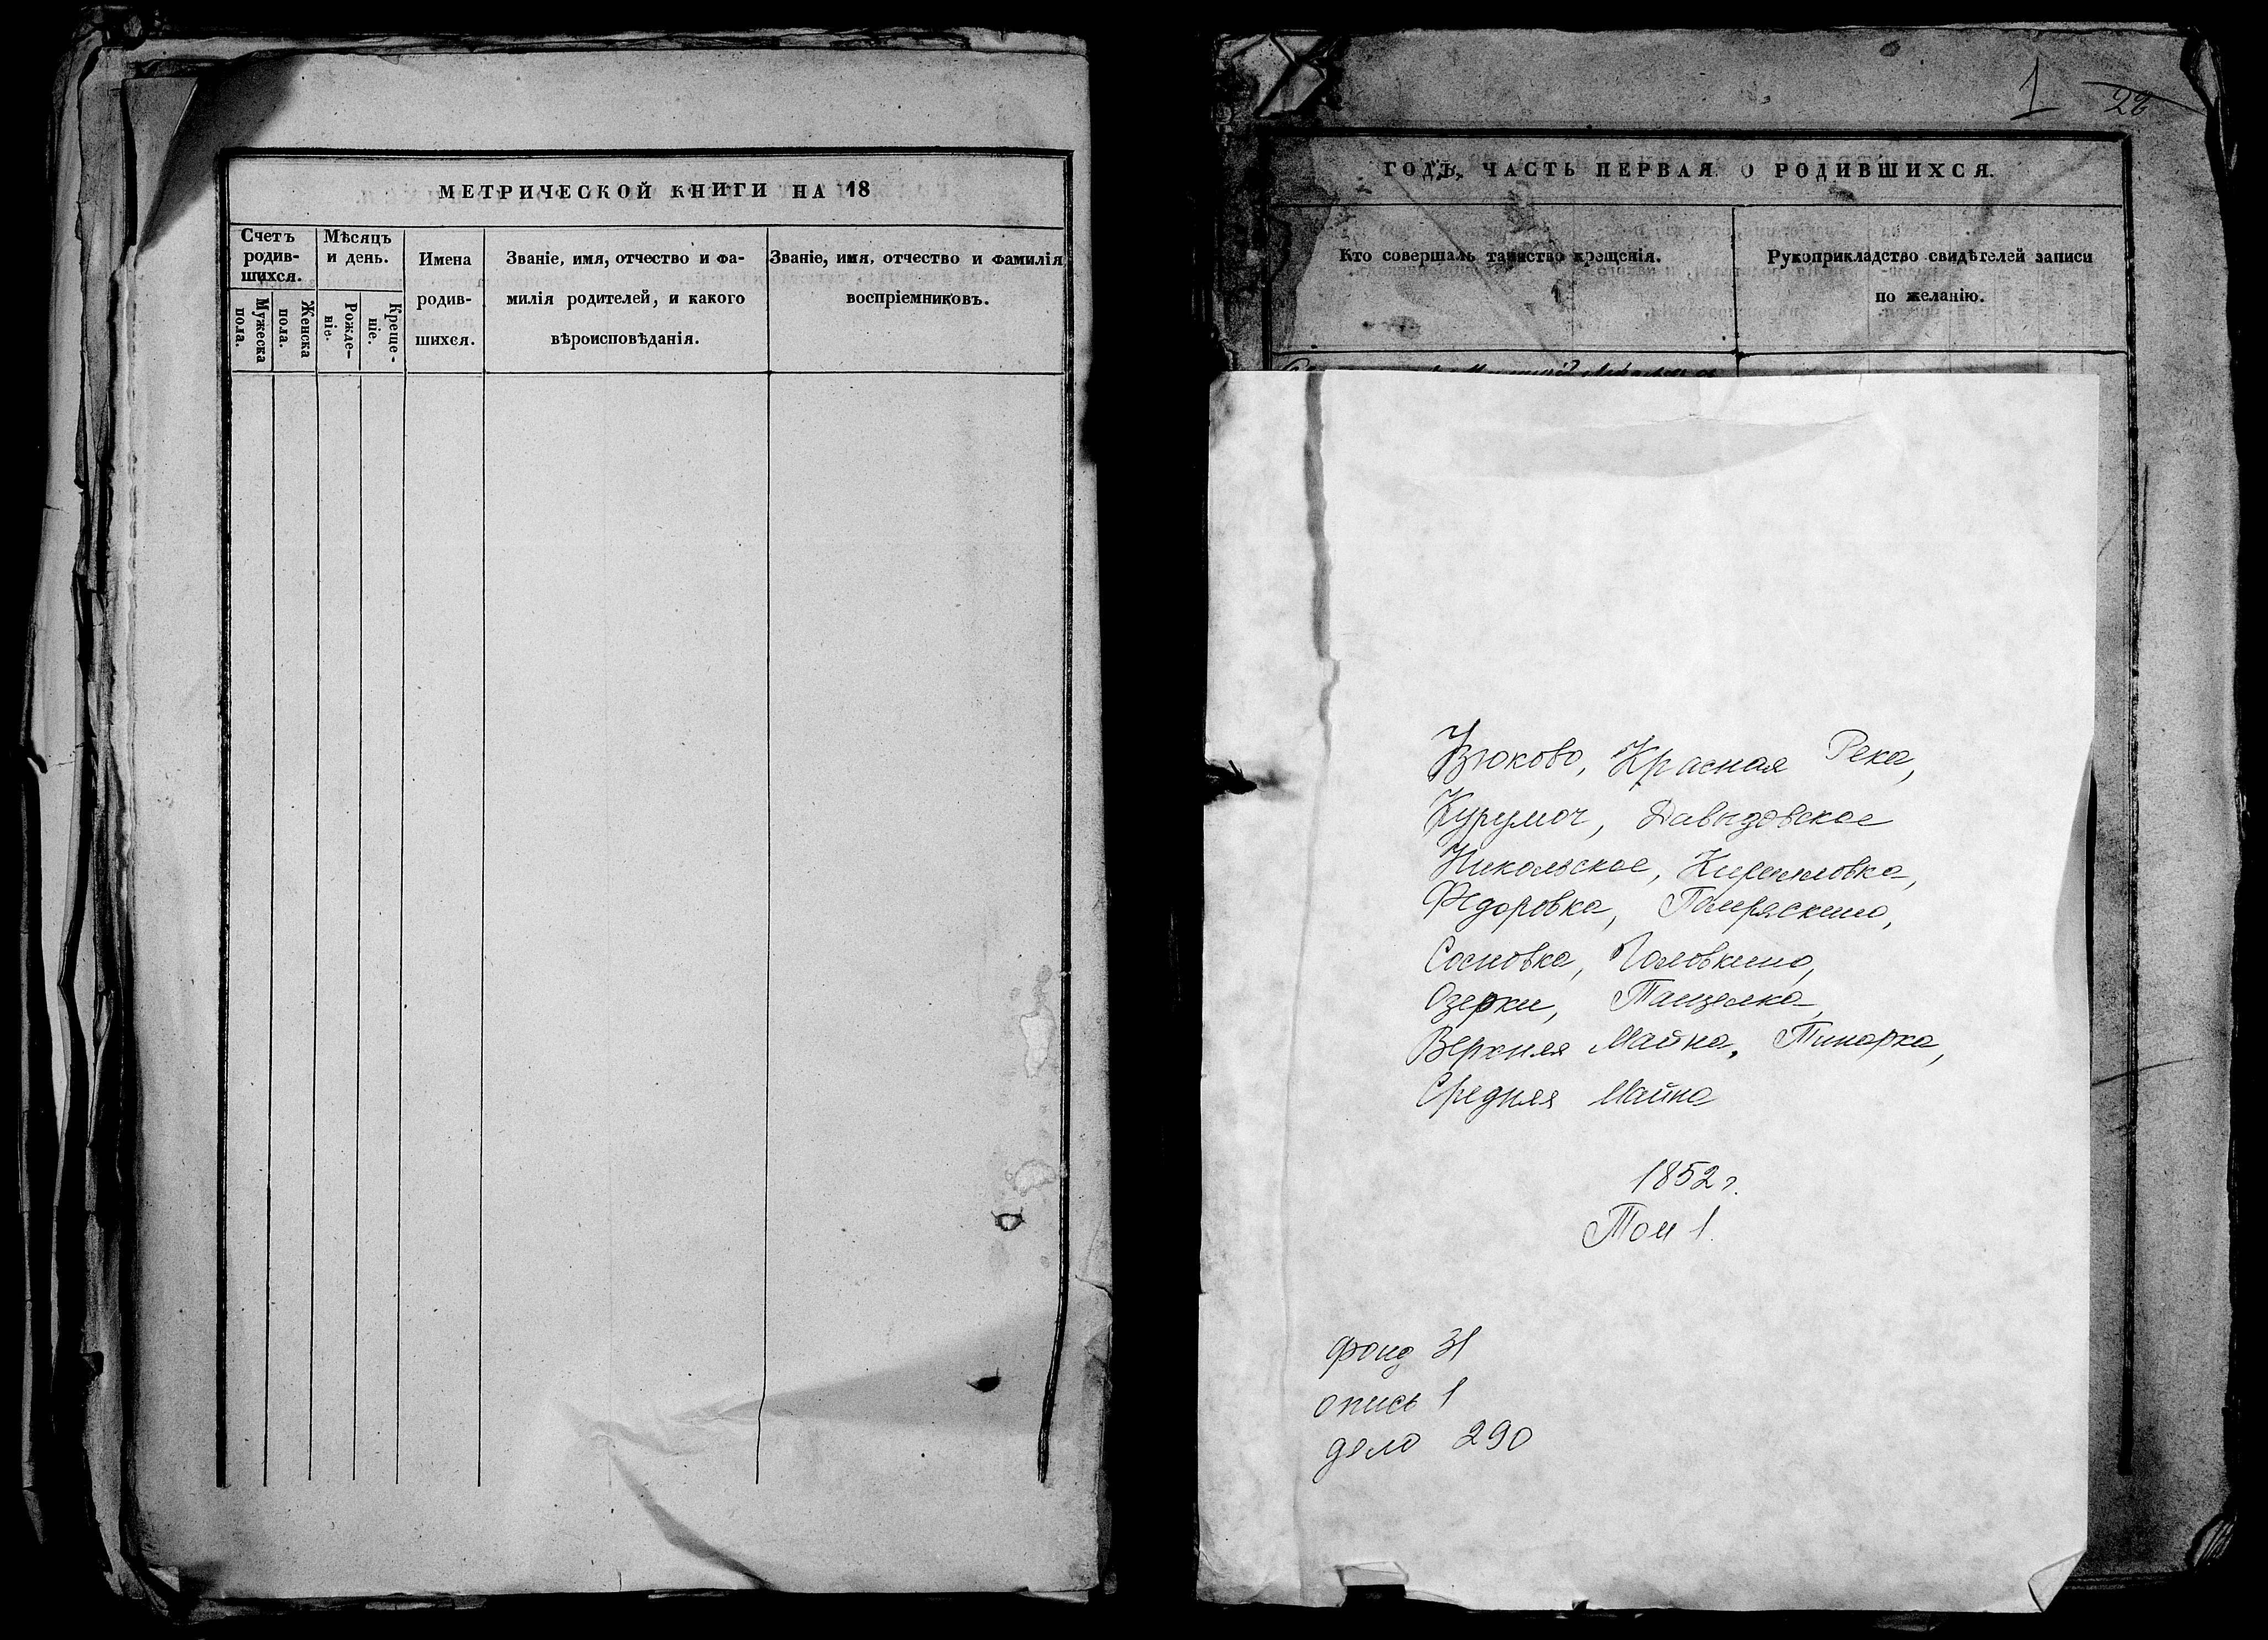 МЕТРИЧЕСКОЙ КНИГИ НА 18
Счетъ
родив-
шихся.
Мѣсяцъ
и день.
Имена
родив-
шихся.
Званіе, имя, отчество и фа-
милія родителей, и какого
вѣроисповѣданія.
Званіе, имя, отчество и фамилія
воспріемниковъ.
Мужеска
пола.
Женска
пола.
Рожде-
ніе.
Креще-
ніе.
1 28
ГОДЪ, ЧАСТЬ ПЕРВАЯ О РОДИВШИХСЯ.
Кто совершалъ таинство крещенія.
Рукоприкладство свидѣтелей записи
по желанію.
Узюково, Красная Река,
Курумоч, Давыдовское
Никольское, Кирилловка,
Федоровка, Помряскино,
Сосновка, Головкино,
Озерки, Танеевка,
Верхняя Майна, Тинарка,
Средняя Майна
1852 г.
Том 1.
фонд 31
опись 1
дело 290